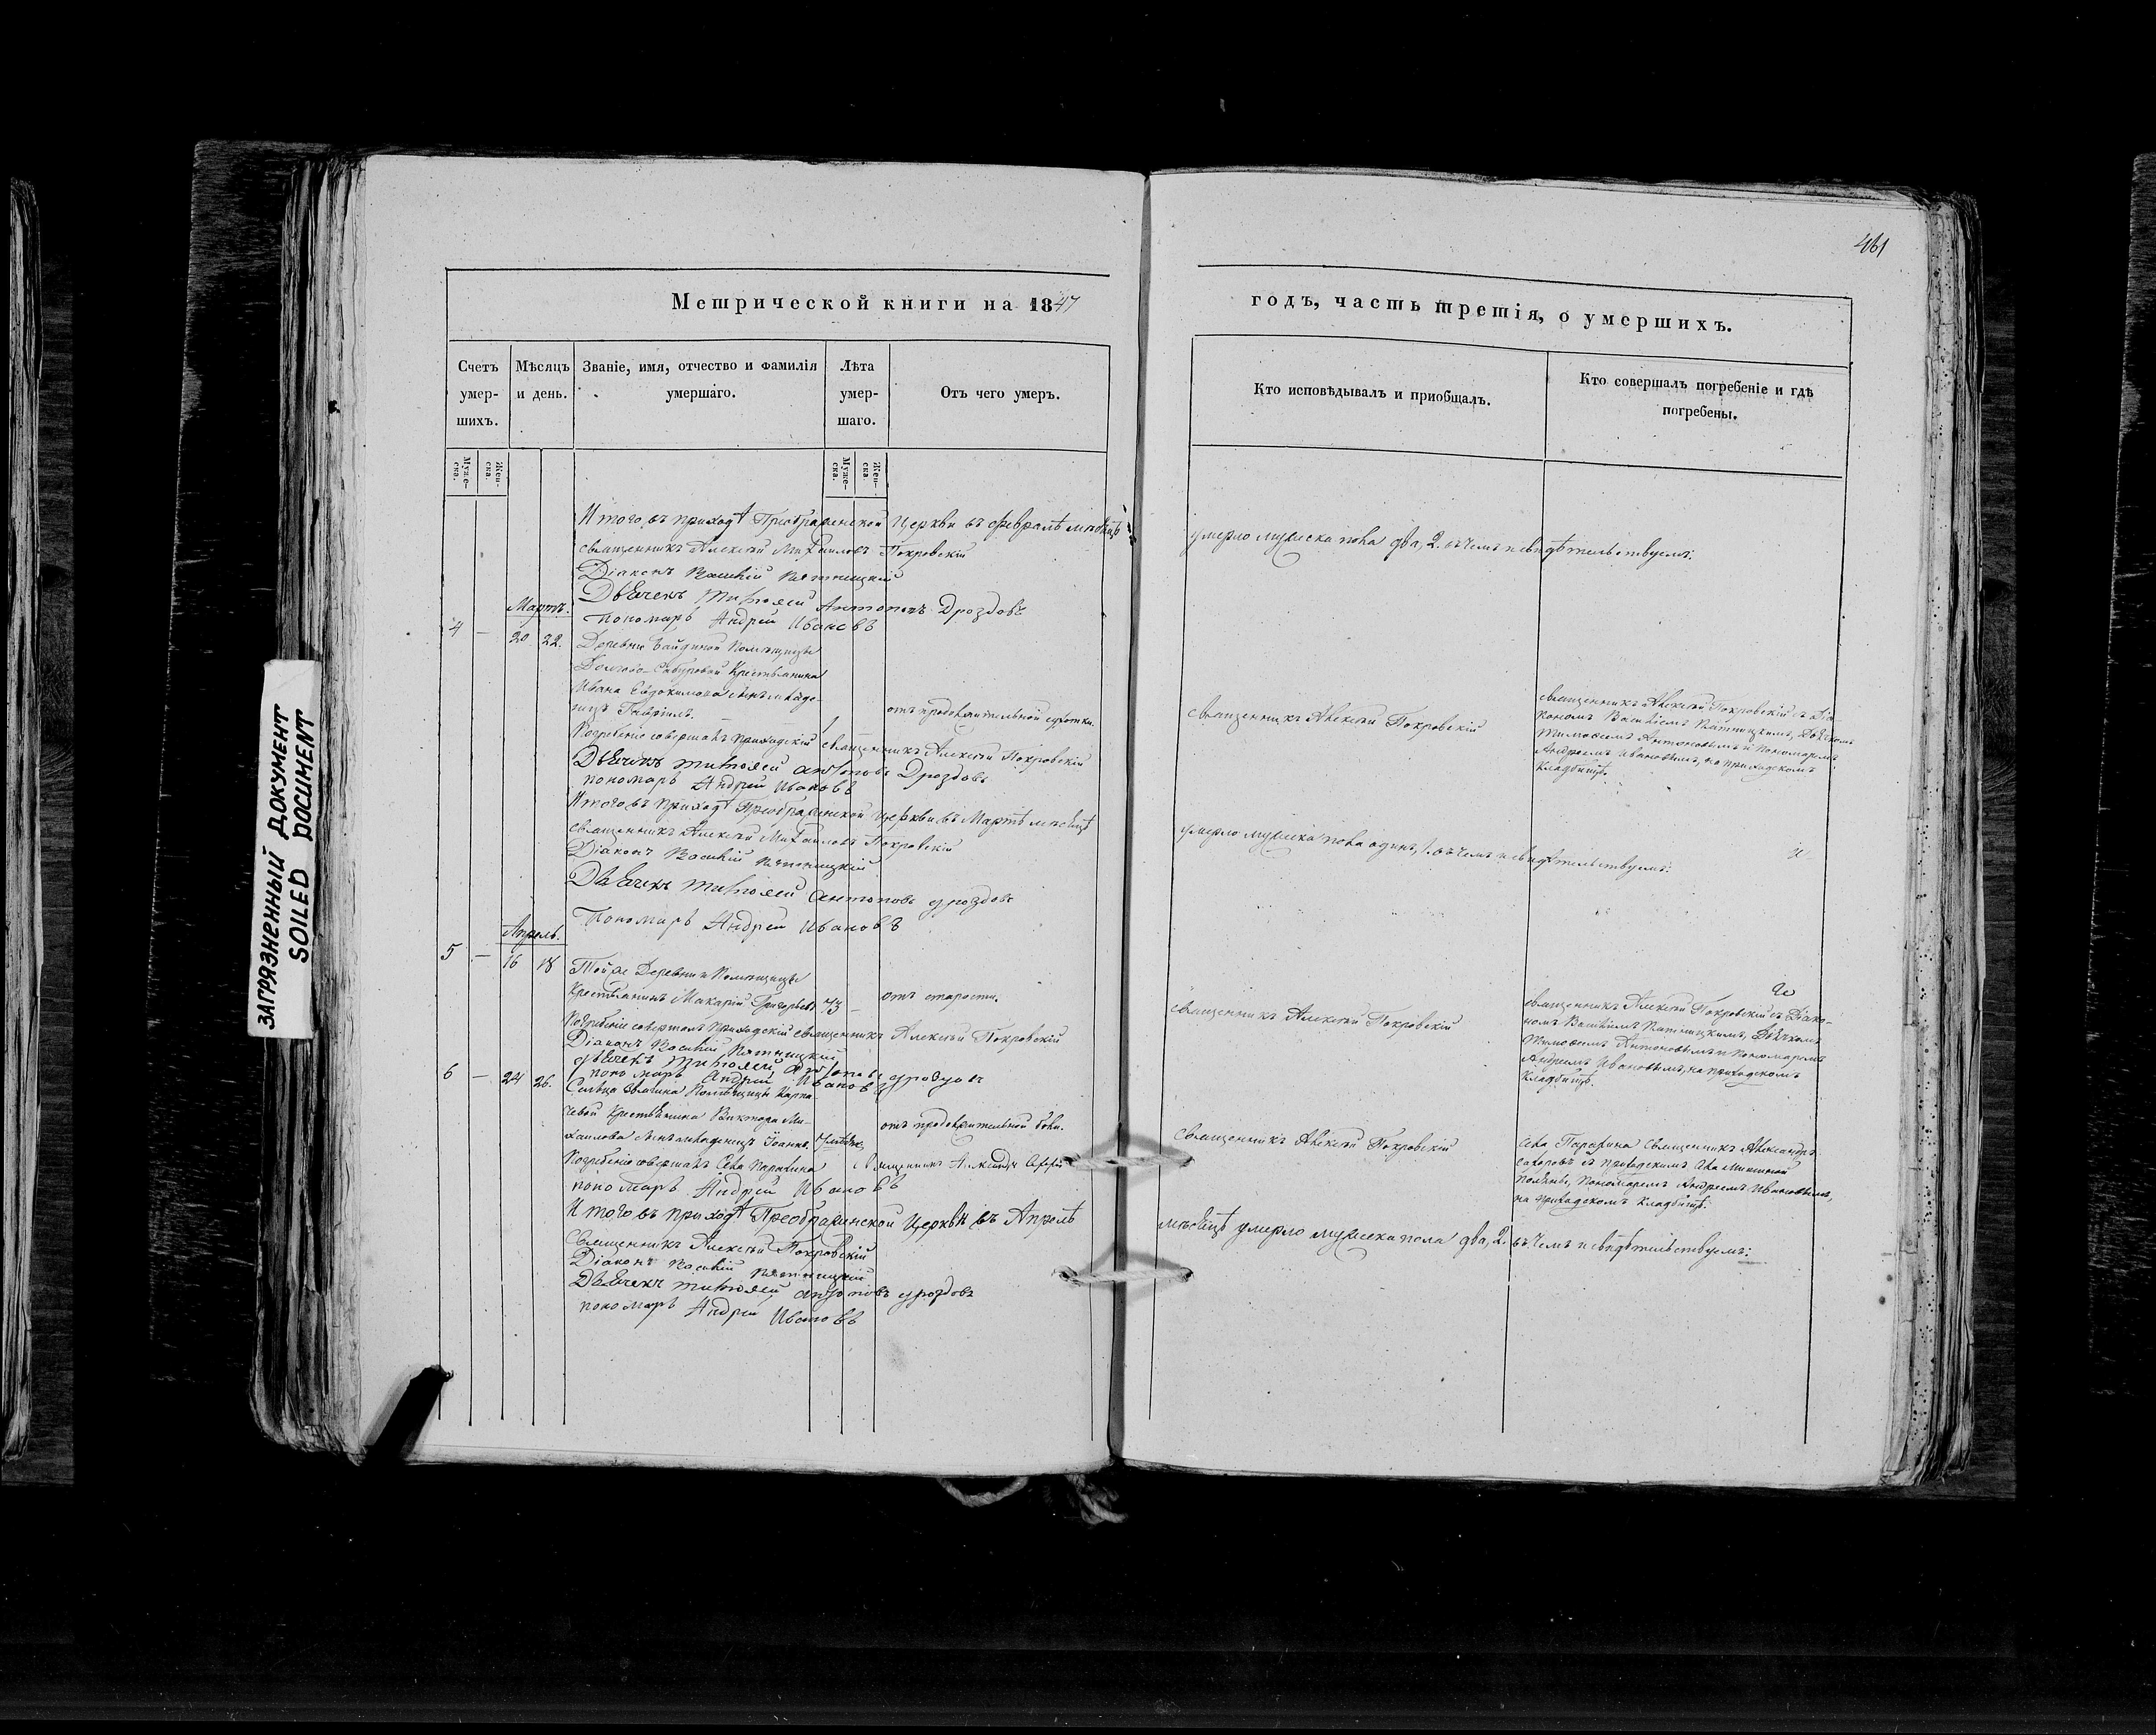 461
Метрической книги на 1847
годъ, часть третія, о умершихъ.
Счетъ умер- шихъ.
Мѣсяцъ и день.
Званіе, имя, отчество и фамилія умершаго.
Лѣта умер- шаго.
Отъ чего умеръ.
Кто исповѣдывалъ и приобщалъ.
Кто совершалъ погребеніе и гдѣ погребены.
Муже- ска.
Жен- ска.
Муже- ска.
Жен- ска.
Итого въ приходѣ Преображенской Церкви въ февралѣ мѣсяцѣ
умерло мужеска пола два, 2. въ чемъ и свидѣтельствуемъ:
священникъ Алексѣй Михаиловъ Покровскій
Діаконъ Василій Пятницкій
Дьячекъ Тимоѳей Антоновъ Дроздовъ
пономарь Андрей Ивановъ
Мартъ.
4 — 20 22.
Деревни Помѣщицы
Сабуровой Крестьянина
Ивана Евдокимова сынъ младе-
нецъ Гавріилъ.
отъ продолжительной сухотки.
священникъ Алексѣй Покровскій
священникъ Алексѣй Покровскій съ Діа
кономъ Василіемъ Пятницкимъ, Дьячкомъ
Тимоѳеемъ Антоновымъ и Пономаремъ
Андреемъ Ивановымъ, на приходскомъ
кладбищѣ.
Погребеніе совершалъ приходскій священникъ Алексѣй Покровскій
Дьячекъ Тимоѳей Антоновъ Дроздовъ
пономарь Андрей Ивановъ
Итого въ приходѣ Преображенской Церкви въ Мартѣ мѣсяцѣ
умерло мужеска пола одинъ, 1. въ чемъ и свидѣтельствуемъ:
священникъ Алексѣй Михаиловъ Покровскій
Діаконъ Василій Пятницкій
Дьячекъ Тимоѳей Антоновъ Дроздовъ
Пономарь Андрей Ивановъ
Апрель.
5 — 16 18
Той же Деревни и Помѣщицы
Крестьянинъ Макарій Григорьевъ 73 —
отъ старости.
священникъ Алексѣй Покровскій
священникъ Алексѣй Покровскій съ Діако-
номъ Василіемъ Пятницкимъ, Дьячкомъ
Тимоѳеемъ Антоновымъ и Пономаремъ
Андреемъ Ивановымъ, на приходскомъ
кладбищѣ.
Погребеніе совершалъ приходскій священникъ Алексѣй Покровскій
Діаконъ Василій Пятницкій
дьячекъ Тимоѳей Антоновъ дроздовъ
пономарь Андрей Ивановъ
6 — 24 26.
Сельца Помѣщицы
Крестьянина Виктора Ми-
хаилова сынъ младенецъ Іоаннъ.
отъ продолжительной боли.
священникъ Алексѣй Покровскій
Села священникъ Александръ
съ приходскимъ села
Поляны, Пономаремъ Андреемъ Ивановымъ,
на приходскомъ кладбищѣ.
Погребеніе совершалъ Села священникъ Александръ
пономарь Андрей Ивановъ
Итого въ приходѣ Преображенской Церкви въ Апрелѣ
мѣсяцѣ умерло мужеска пола два, 2. въ чемъ и свидѣтельствуемъ:
Священникъ Алексѣй Покровскій
Діаконъ Василій Пятницкій
Дьячекъ Тимоѳей Антоновъ дроздовъ
пономарь Андрей Ивановъ
ЗАГРЯЗНЕННЫЙ ДОКУМЕНТ
SOILED DOCUMENT